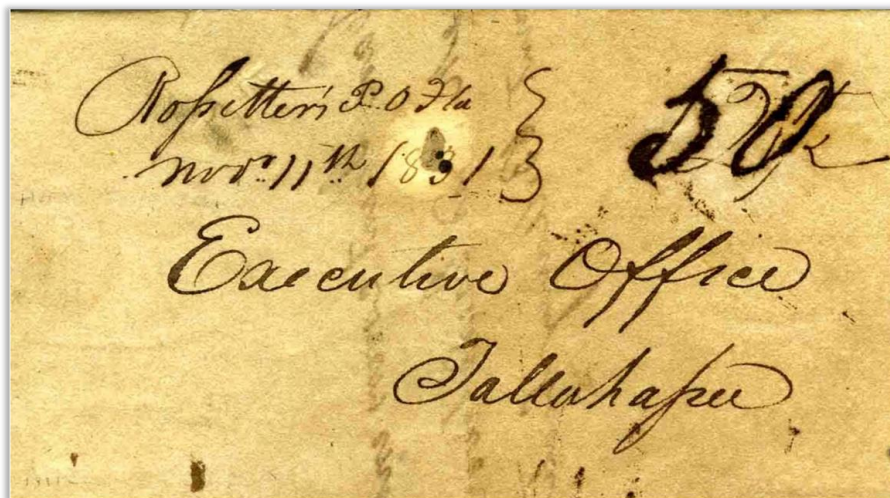 Rossetter's P.O Fla
Novr. 11th 1831
50
Executive Office
Tallahassee